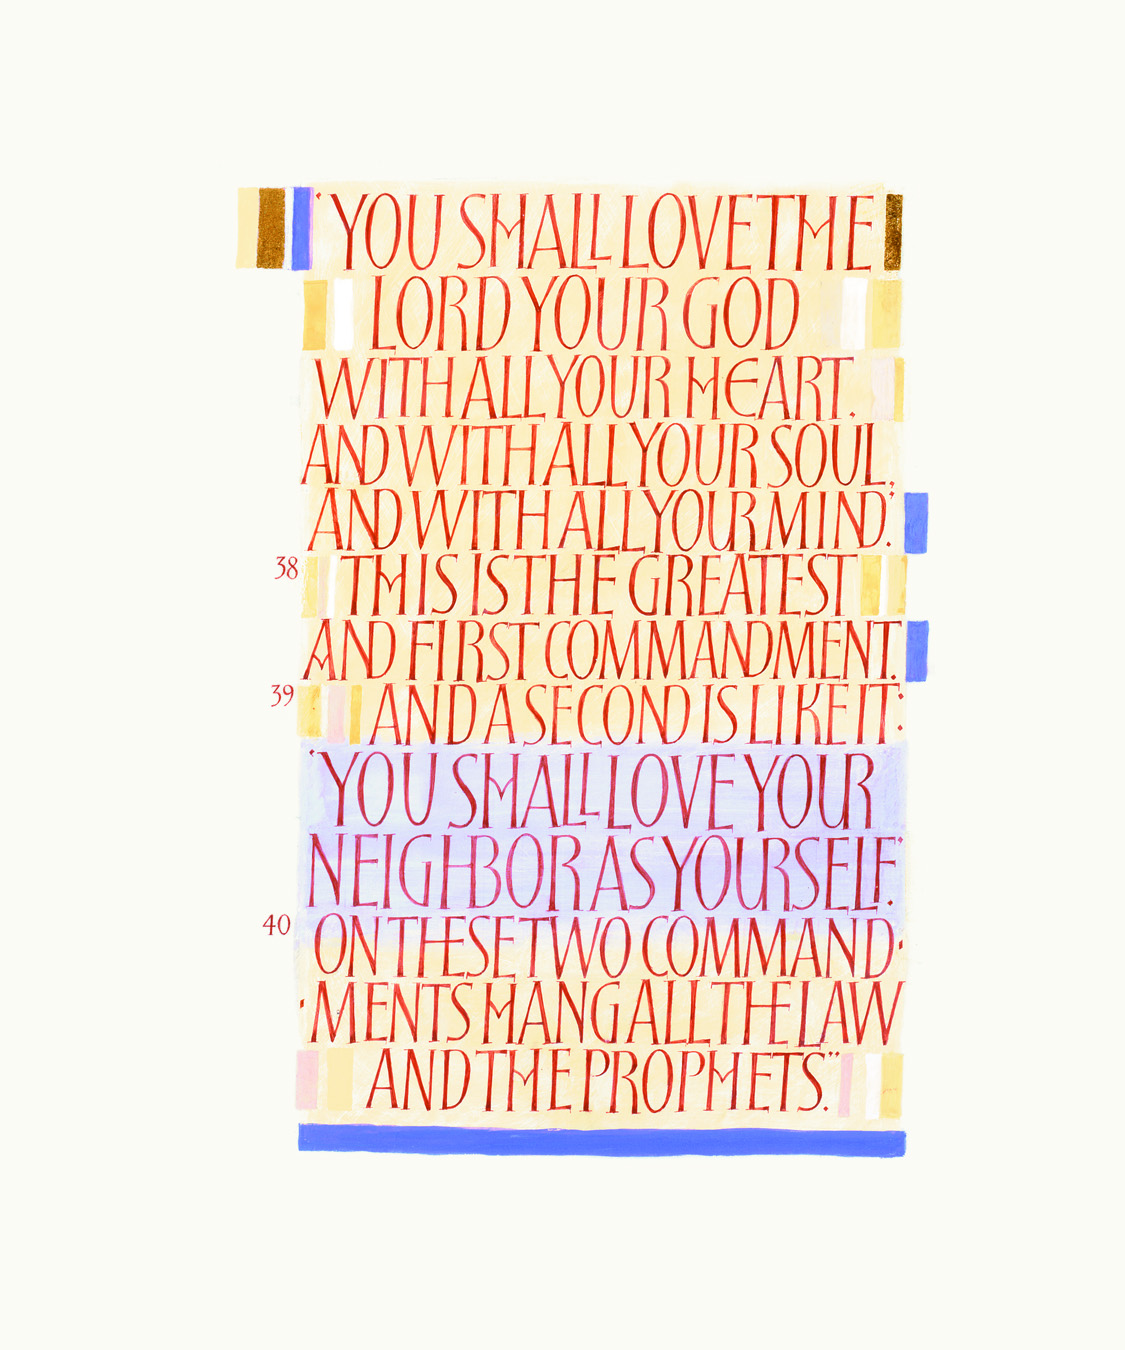 'YOU SHALL LOVE THE
LORD YOUR GOD
WITH ALL YOUR HEART,
AND WITH ALL YOUR SOUL,
AND WITH ALL YOUR MIND.'
38 THIS IS THE GREATEST
AND FIRST COMMANDMENT.
39 AND A SECOND IS LIKE IT:
'YOU SHALL LOVE YOUR
NEIGHBOR AS YOURSELF.'
40 ON THESE TWO COMMAND-
-MENTS HANG ALL THE LAW
AND THE PROPHETS."